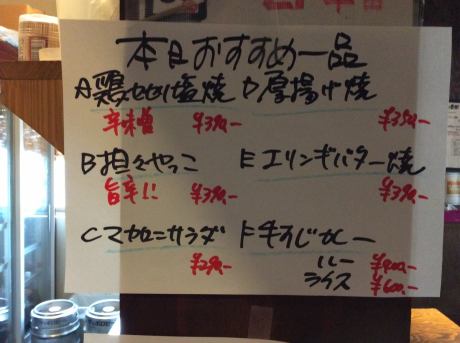 本日おすすめ一品
A鶏セセリ塩焼
辛味噌 ¥390-
B担々やっこ
旨辛!! ¥390-
Cマカロニサラダ
¥290-
D厚揚げ焼
¥350-
Eエリンギバター焼
¥390-
F牛すじカレー
ルー ¥400-
ライス ¥600-